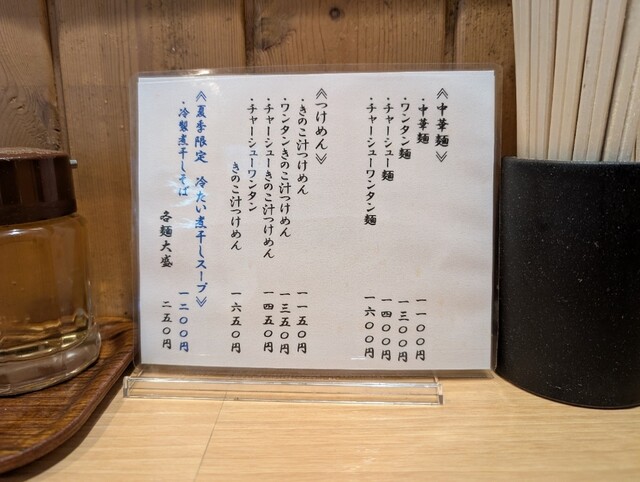 ≪中華麺≫
・中華麺 一一〇〇円
・ワンタン麺 一三〇〇円
・チャーシュー麺 一四〇〇円
・チャーシューワンタン麺 一六〇〇円
≪つけめん≫
・きのこ汁つけめん 一一五〇円
・ワンタンきのこ汁つけめん 一三五〇円
・チャーシューきのこ汁つけめん 一四五〇円
・チャーシューワンタン
きのこ汁つけめん 一六五〇円
≪夏季限定 冷たい煮干しスープ≫
・冷製煮干しそば 一二〇〇円
各麺大盛 二五〇円